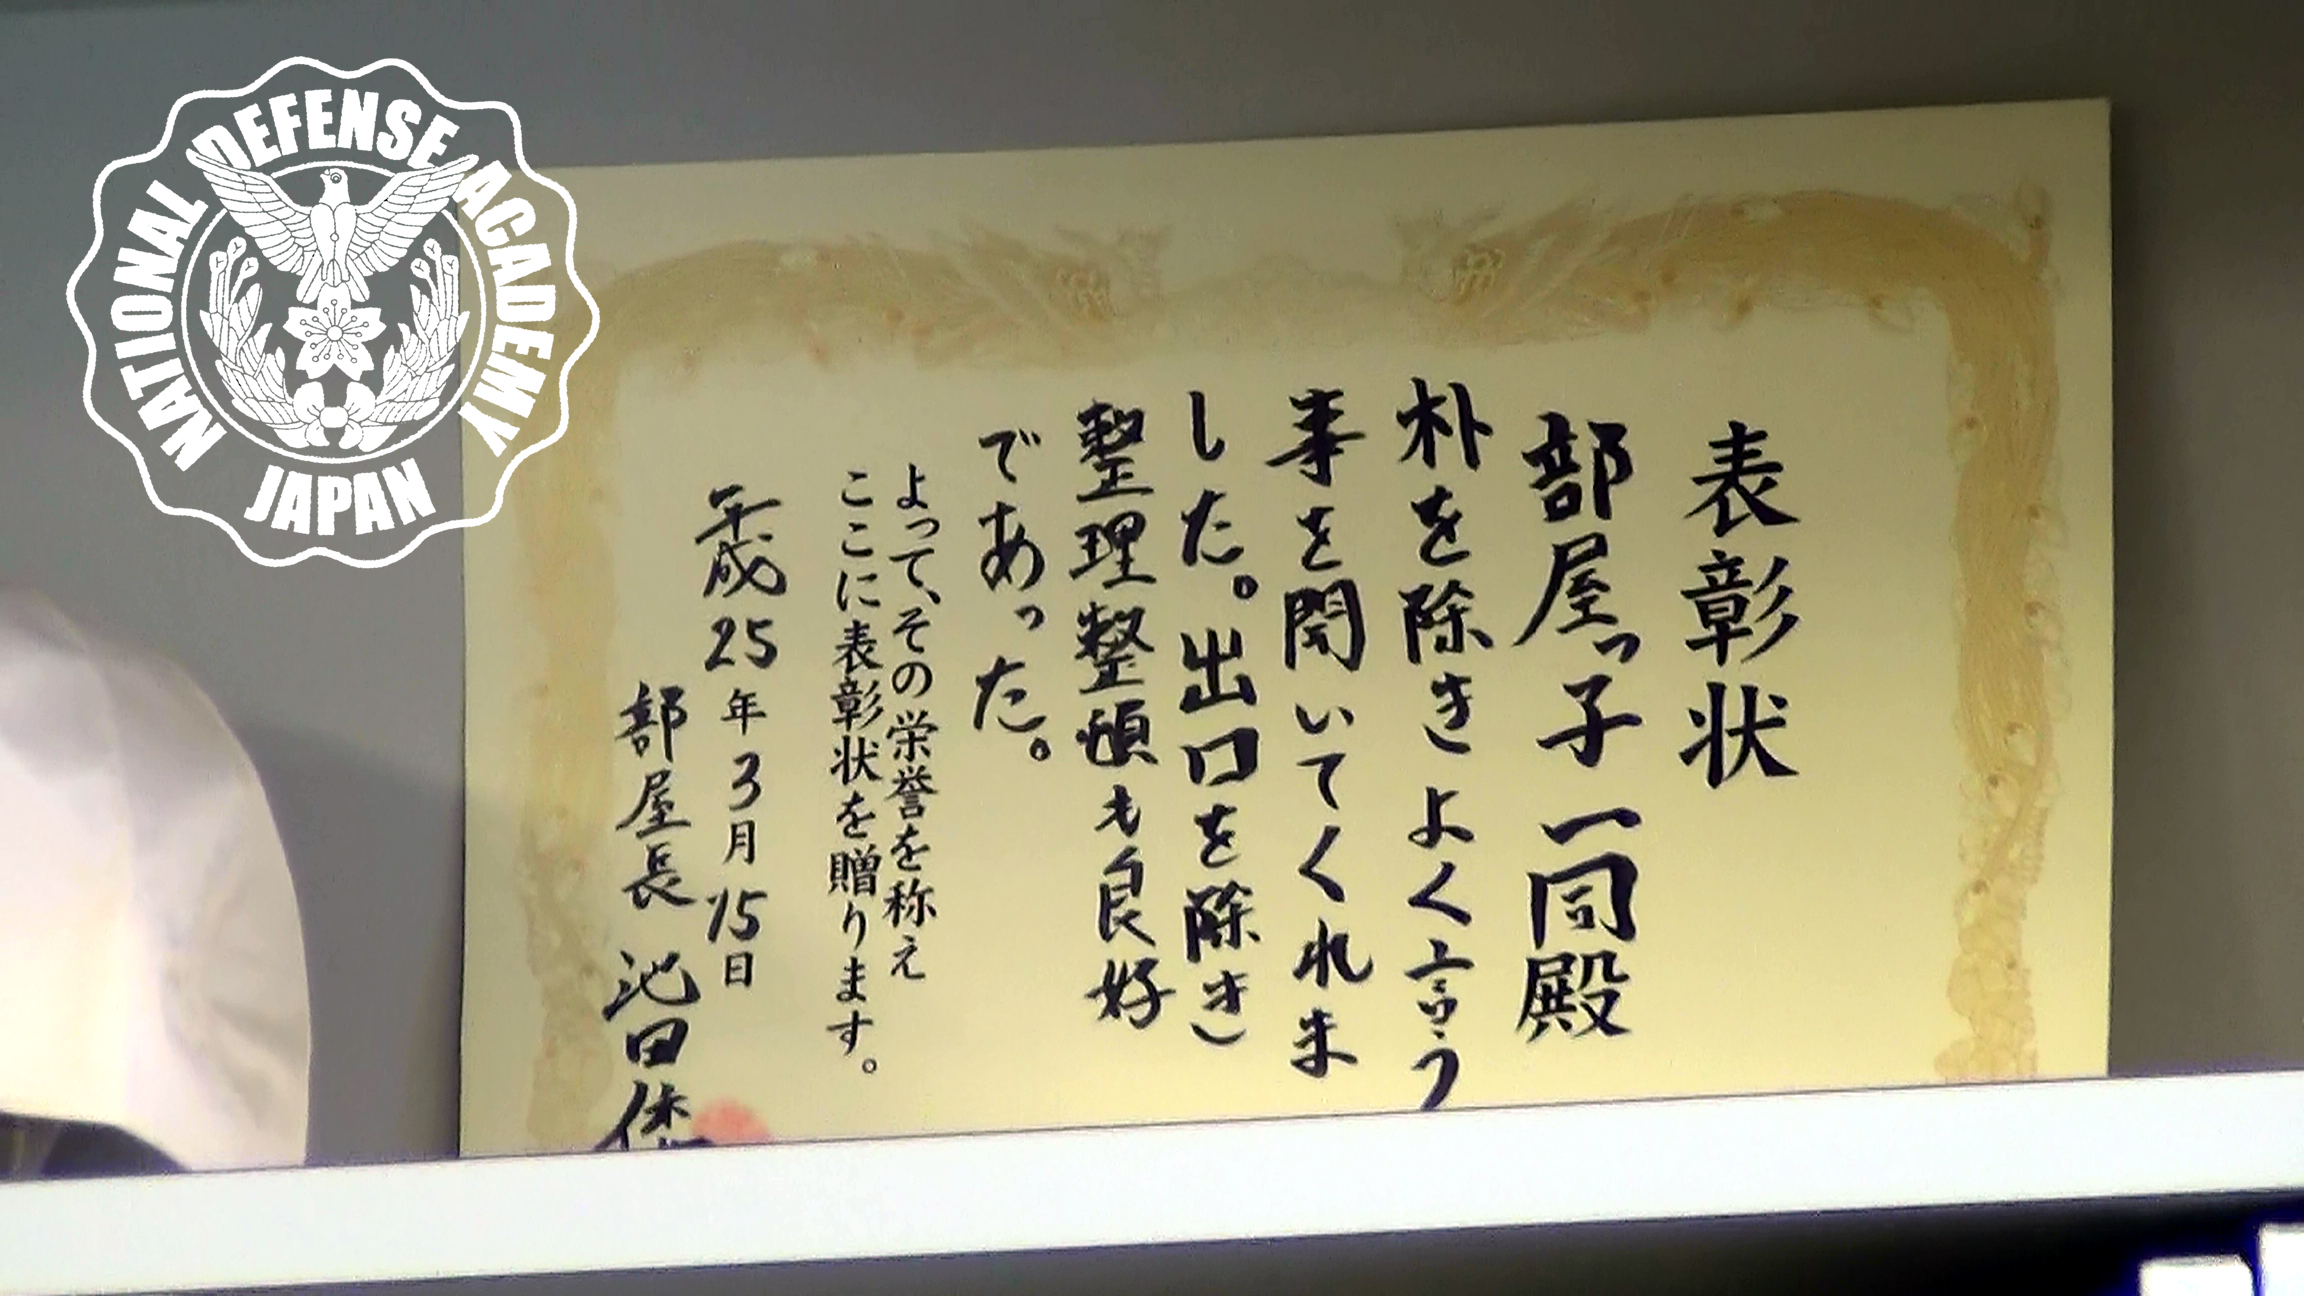 NATIONAL DEFENSE ACADEMY
JAPAN
表彰状
部屋っ子一同殿
朴を除きよく言う
事を聞いてくれま
した。出口を除き
整理整頓も良好
であった。
よって、その栄誉を称え
ここに表彰状を贈ります。
平成25年3月15日
部屋長 池田